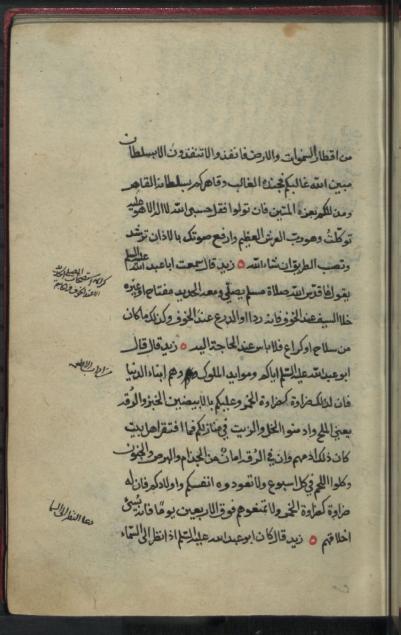 من اقطار السموات والارض فانفذوا لا تنفذون الا بسلطان
مبين الله غالبكم فجنده الغالب وقاهركم بسلطانه القاهر
ومذللكم بعزه المتين فان تولوا فقل حسبى الله لا اله الا هو عليه
توكلت وهو رب العرش العظيم وارفع صوتك بالاذان ترشد
وتصب الطريق ان شاء الله ٥ زيد قال سمعت ابا عبد الله عليه السلم
يقول لا قدس الله صلاة مسلم يصلى ومعه الحديد مفتاح او غيره
خلا السيف عند الخوف فانه رداء والدرع عند الخوف وكذلك ما كان
من سلاح او كراع فلا باس عند الحاجة اليه ٥ زيد قال قال
ابو عبد الله عليه السلم اياكم وموايد الملوك وهم ابناء الدنيا
فان لذلك ضراوة كضراوة الخمر وعليكم بالابيضين الخبز والرقه
يعنى الملح وادمنوا الخل والزيت فى منازلكم فما افتقر اهل بيت
كان ذلك ادمهم وان فى الرقه امانا من الجذام والبرص والجنون
وكلوا اللحم فى كل اسبوع ولا تعودوه انفسكم واولادكم فان له
ضراوة كضراوة الخمر ولا تمنعوهم فوق الاربعين يوما فانه يسئ
اخلاقهم ٥ زيد قال كان ابو عبد الله عليه السلم اذا نظر الى السماء
دعا النظر الى السما